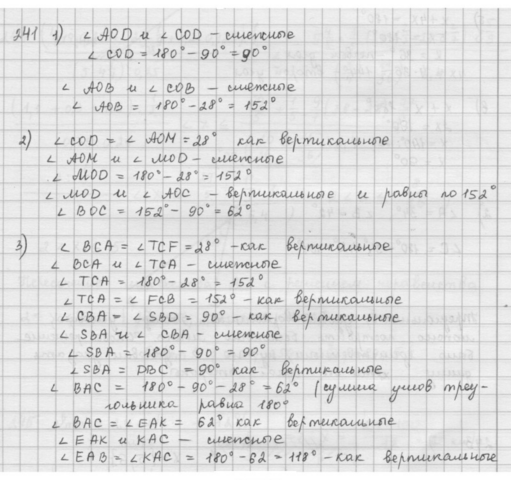 241 1) ∠ AOD и ∠ COD - смежные
∠ COD = 180° - 90° = 90°
∠ AOB и ∠ COB - смежные
∠ AOB = 180° - 28° = 152°
2) ∠ COD = ∠ AOM = 28° как вертикальные
∠ AOM и ∠ MOD - смежные
∠ MOD = 180° - 28° = 152°
∠ MOD и ∠ AOC - вертикальные и равны по 152°
∠ BOC = 152° - 90° = 62°
3) ∠ BCA = ∠ TCF = 28° - как вертикальные
∠ BCA и ∠ TCA - смежные
∠ TCA = 180° - 28° = 152°
∠ TCA = ∠ FCB = 152° - как вертикальные
∠ CBA = ∠ SBD = 90° - как вертикальные
∠ SBA и ∠ CBA - смежные
∠ SBA = 180° - 90° = 90°
∠ SBA = DBC = 90° как вертикальные
∠ BAC = 180° - 90° - 28° = 62° (сумма углов треу-
гольника равна 180°
∠ BAC = ∠ EAK = 62° как вертикальные
∠ EAK и KAC - смежные
∠ EAB = ∠ KAC = 180° - 62 = 118° - как вертикальные